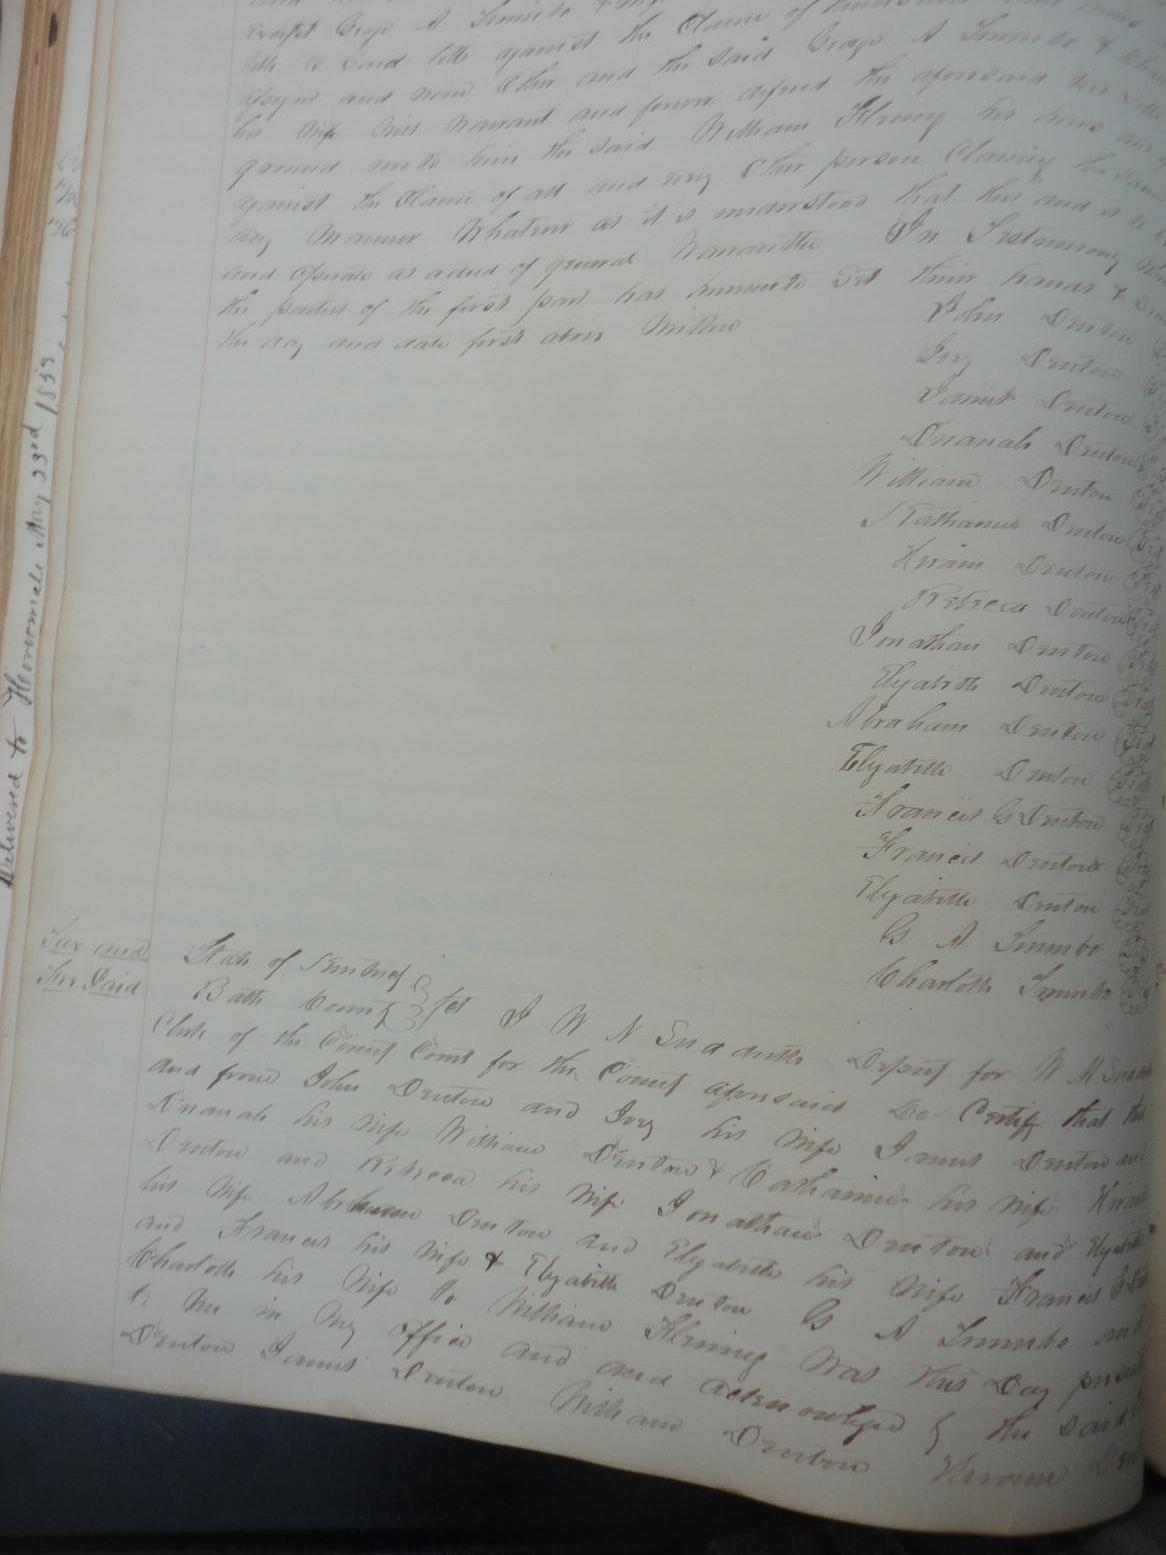 except George A Trumbo
bill to said lotts against the Claim of
assigns and none Other and the said George A Trumbo &
his wife will warrant and forever defend the aforesaid
ground unto him the said William Fleming his heirs and
against the Claim of all and every Other person Claiming the same
any Manner Whatever as it is understood that this and is to
and operate as a deed of general Warranttee In Testimony
the parties of the first part has hereunto Set their hands &
the day and date first above Written
John Denton
Ivy Denton
James Denton
Denton
William Denton
Denton
Hiram Denton
Rebecca Denton
Jonathan Denton
Elizabeth Denton
Abraham Denton
Elizabeth Denton
Francis G Denton
Francis Denton
Elizabeth Denton
G A Trumbo
Charlotte Trumbo
Delivered to May 23rd
Tax and
Fee Paid
State of Kentucky
Bath County Sct I W N Sudduth Deputy for W M
Clerk of the County Court for the County aforesaid Do Certify that this
and from John Denton and Ivy his Wife James Denton and
his Wife William Denton & Catharine his Wife Hiram
Denton and Rebecca his Wife Jonathan Denton and Elizabeth
his Wife Abraham Denton and Elizabeth his Wife Francis G
and Francis his Wife & Elizabeth Denton G A Trumbo and
Charlotte his Wife to William Fleming Was this Day
to Me in My Office and acknowledged by the said
Denton James Denton William Denton Hiram